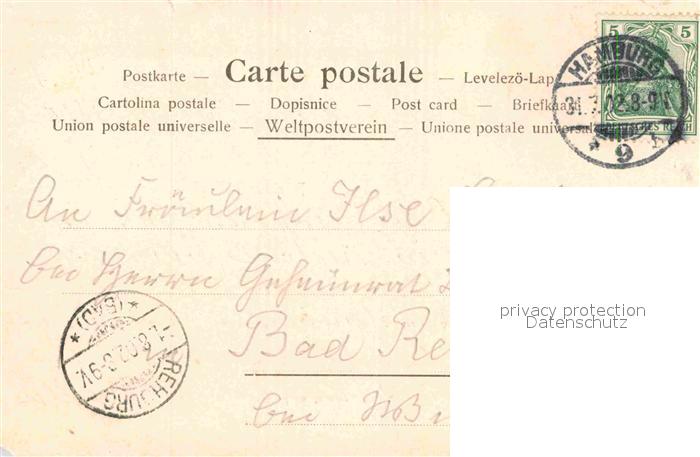 5 5
DEUTSCHES REICH
HAMBURG
31.7.02.8-9V.
* 9
Postkarte — Carte postale — Levelező-Lap
Cartolina postale — Dopisnice — Post card — Briefkaart
Union postale universelle — Weltpostverein — Unione postale universale
An Fräulein Ilse
bei Herrn Geheimrat
Bad Re
bei
REHBURG
1.8.02.8-9V.
*(BAD)*
privacy protection
Datenschutz